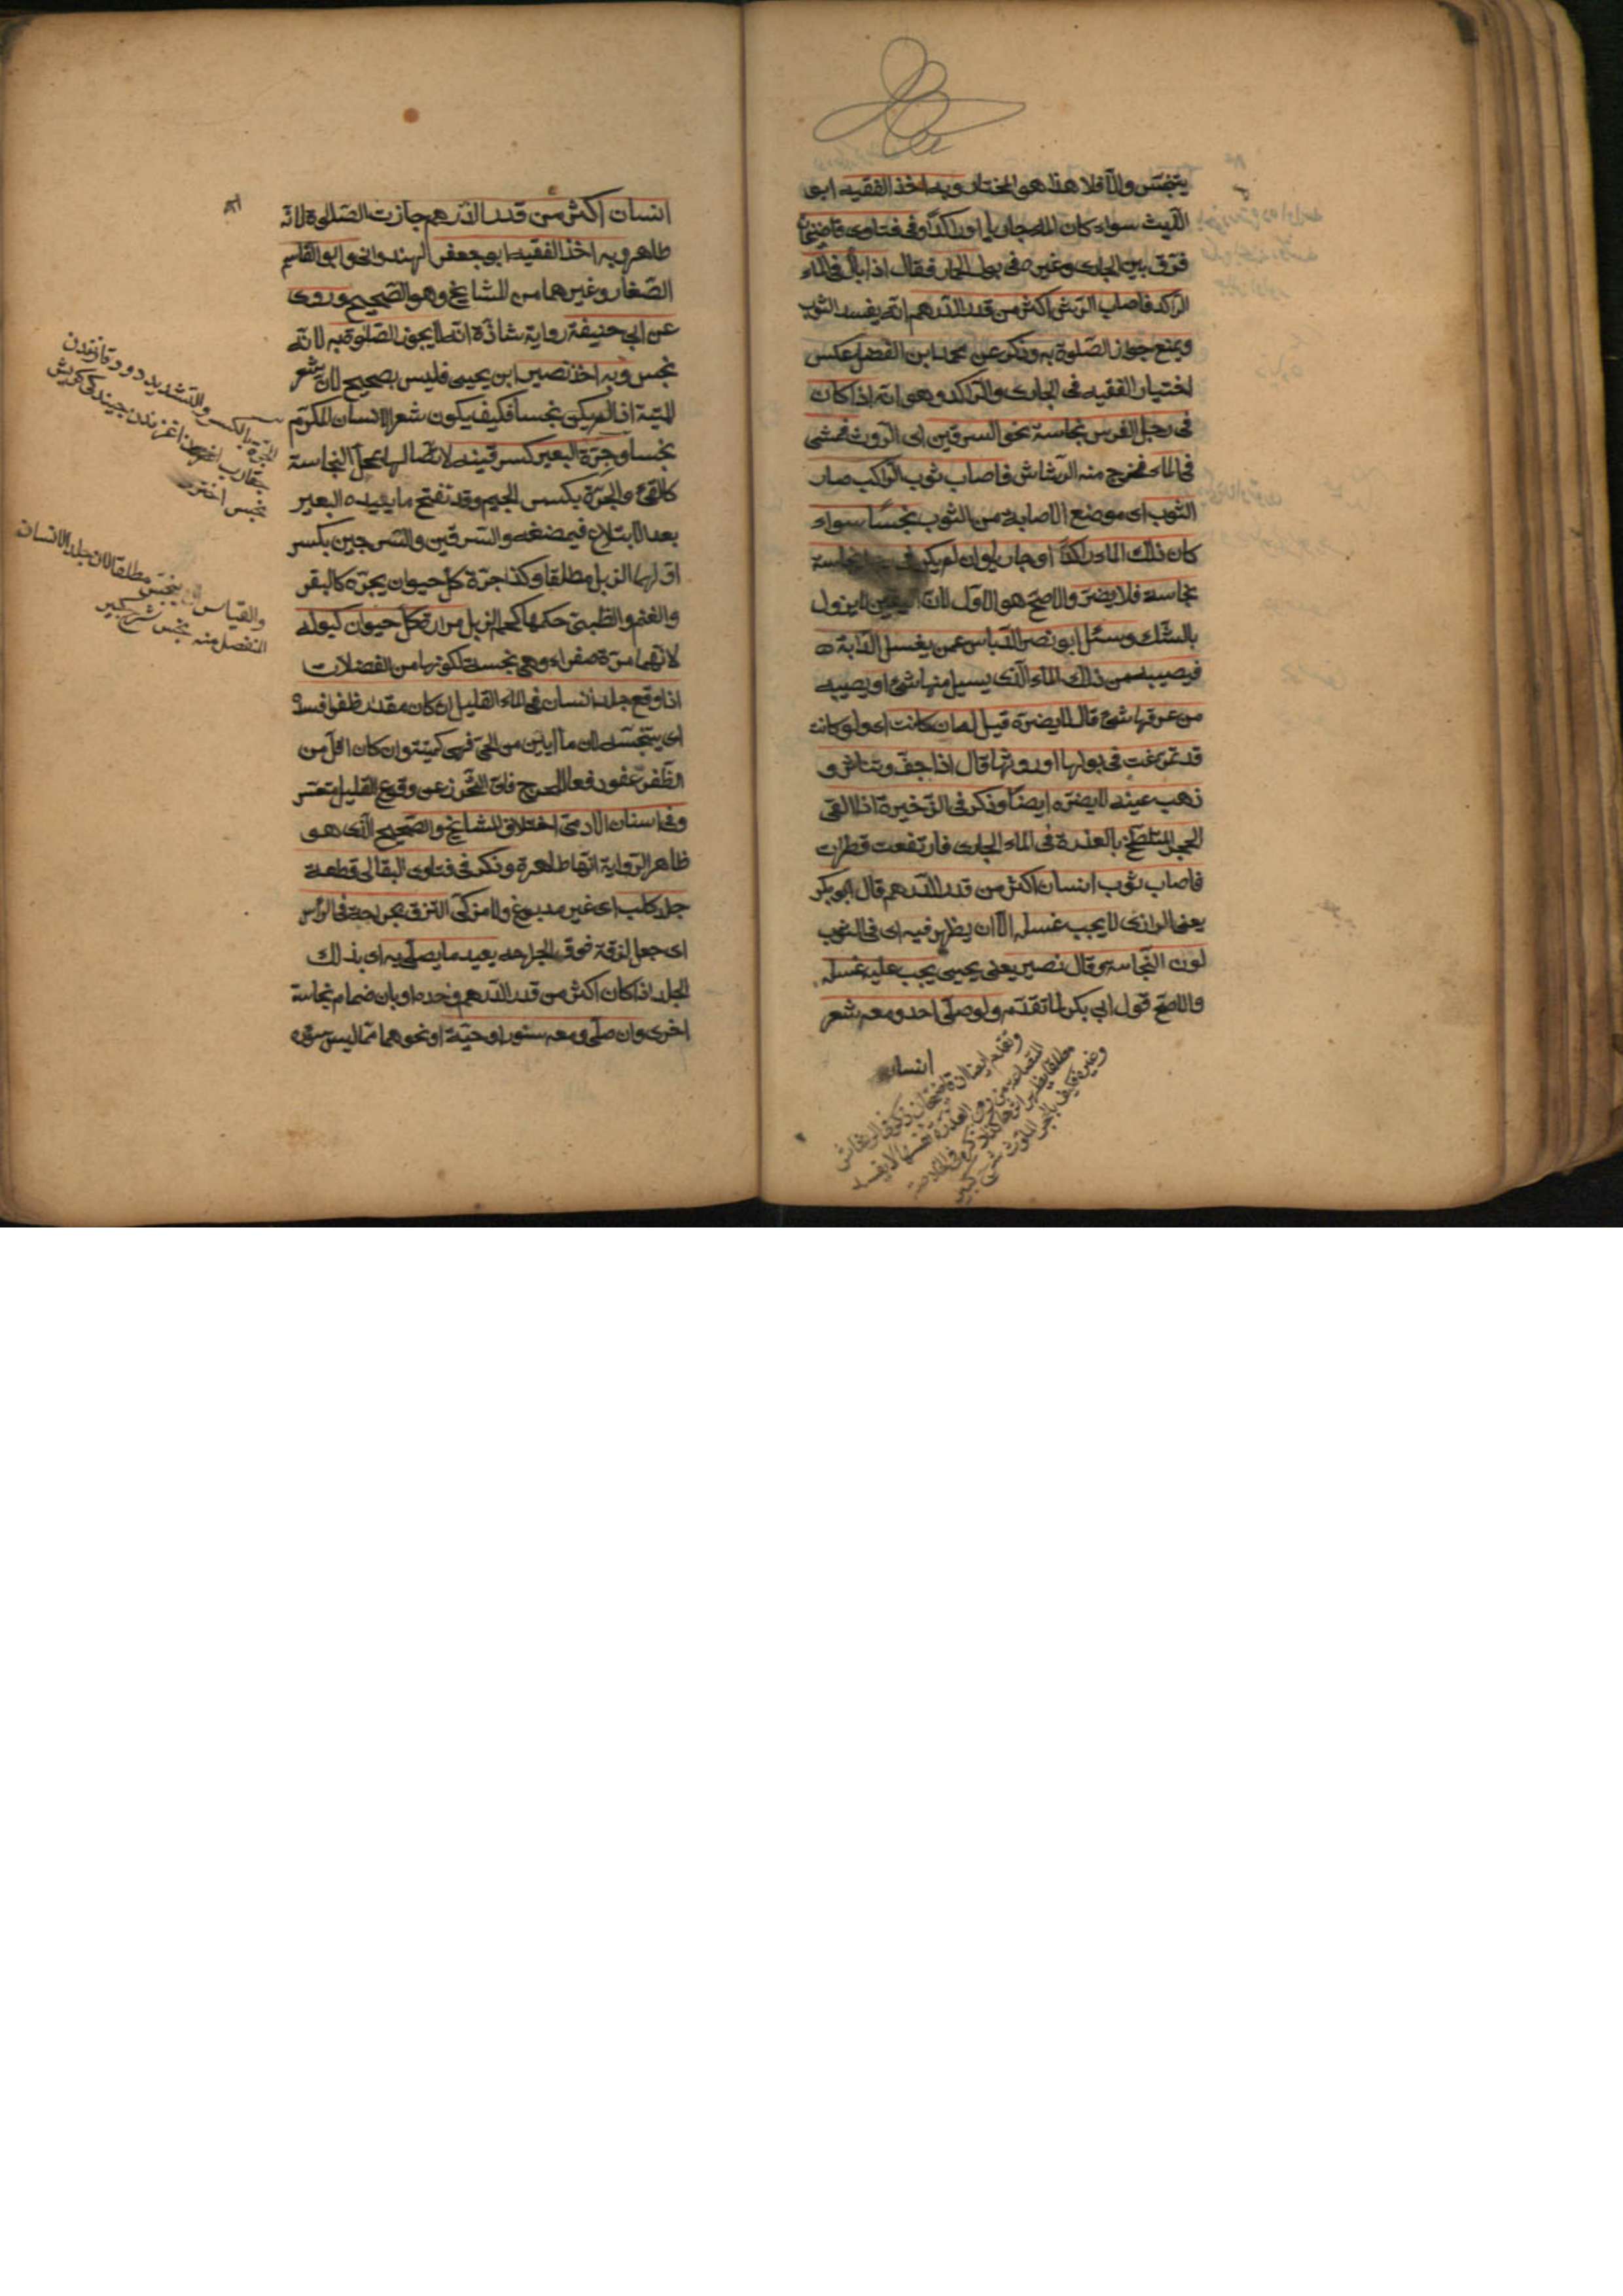 يتنجس والا فلا هذا هو المختار وبه اخذ الفقيه ابو
الليث سواء كان الماء جاريا او راكدا وفى فتاوى قاضيخان
فرق بين الجارى وغيره فى بول الحمار فقال اذا بال فى الماء
الراكد فاصاب الرش اكثر من قدر الدرهم انه يفسد الثوب
ويمنع جواز الصلوة به وذكر عن محمد ابن الفضل عكس
اختيار الفقيه فى الجارى والراكد وهو انه اذا كان
فى رجل الفرس نجاسة نحو السرقين اى الروث فمشى
فى الماء فخرج منه الرشاش فاصاب ثوب الراكب صار
الثوب اى موضع الاصابة من الثوب نجسا سواء
كان ذلك الماء راكدا او جاريا وان لم يكن فى نجاسة
نجاسة فلا يضر والاصح هو الاول لان اليقين لا يزول
بالشك وسئل ابو نصر الدباس عمن يغسل الدابة
فيصيبه من ذلك الماء الذى يسيل منها شئ او يصيبه
من عرقها شئ قال لا يضره قيل له وان كانت اى ولو كانت
قد تمرغت فى بولها او روثها قال اذا جف وتناثر و
ذهب عينه لا يضره ايضا وذكر فى الذخيرة اذا القى
الحجر المتلطخ بالعذرة فى الماء الجارى فارتفعت قطرات
فاصاب ثوب انسان اكثر من قدر الدرهم قال ابو بكر
يعنى الرازى لا يجب غسله الا ان يظهر فيه اى فى الثوب
لون النجاسة وقال نصير يعنى يحيى يجب عليه غسله
والاصح قول ابى بكر لما تقدم ولو صلى احد ومعه شعر
انسان
انسان اكثر من قدر الدرهم جازت الصلوة لانه
طاهر وبه اخذ الفقيه ابو جعفر الهندوانى وابو القاسم
الصفار وغيرهما من المشايخ وهو الصحيح وروى
عن ابى حنيفة رواية شاذة انه لا يجوز الصلوة به لانه
نجس وبه اخذ نصير ابن يحيى فليس بصحيح لان شعر
الميتة اذا لم يكن نجسا فكيف يكون شعر الانسان المكرم
نجسا وجرة البعير كسرقينه لاتصالها بمحل النجاسة
كالقئ والجرة بكسر الجيم وقد تفتح ما يعيده البعير
بعد الابتلاع فيمضغه والسرقين والسرجين بكسر
اولهما الزبل مطلقا وكذا جرة كل حيوان يجره كالبقر
والغنم والظبى حكمها كحكم الزبل مرارة كل حيوان كبوله
لانهما مرة صفراء وهى نجسة لكونها من الفضلات
اذا وقع جلد انسان فى الماء القليل ان كان مقدار ظفر افسده
اى يتنجسه لان ما ابين من الحى فهى كميتة وان كان اقل من
الظفر عفو دفعا للحرج فان التحرز عن وقوع القليل متعسر
وفى اسنان الادمى اختلاف المشايخ والصحيح الذى هو
ظاهر الرواية انها طاهرة وذكر فى فتاوى البقالى قطعة
جلد كلب اى غير مدبوغ ولا مزكى التزق بجراحة فى الرأس
اى جعل لزقة فوق الجراحه يعيد ما يصلى به اى بذلك
الجلد اذا كان اكثر من قدر الدرهم وحده او بانضمام نجاسة
اخرى وان صلى ومعه سنور او حية او نحوهما مما ليس سؤره
الجرة بالكسر والتشديد
نجس اخترى
والقياس ان ينجس مطلقا لان جلد الانسان
المنفصل منه نجس شرح كبير